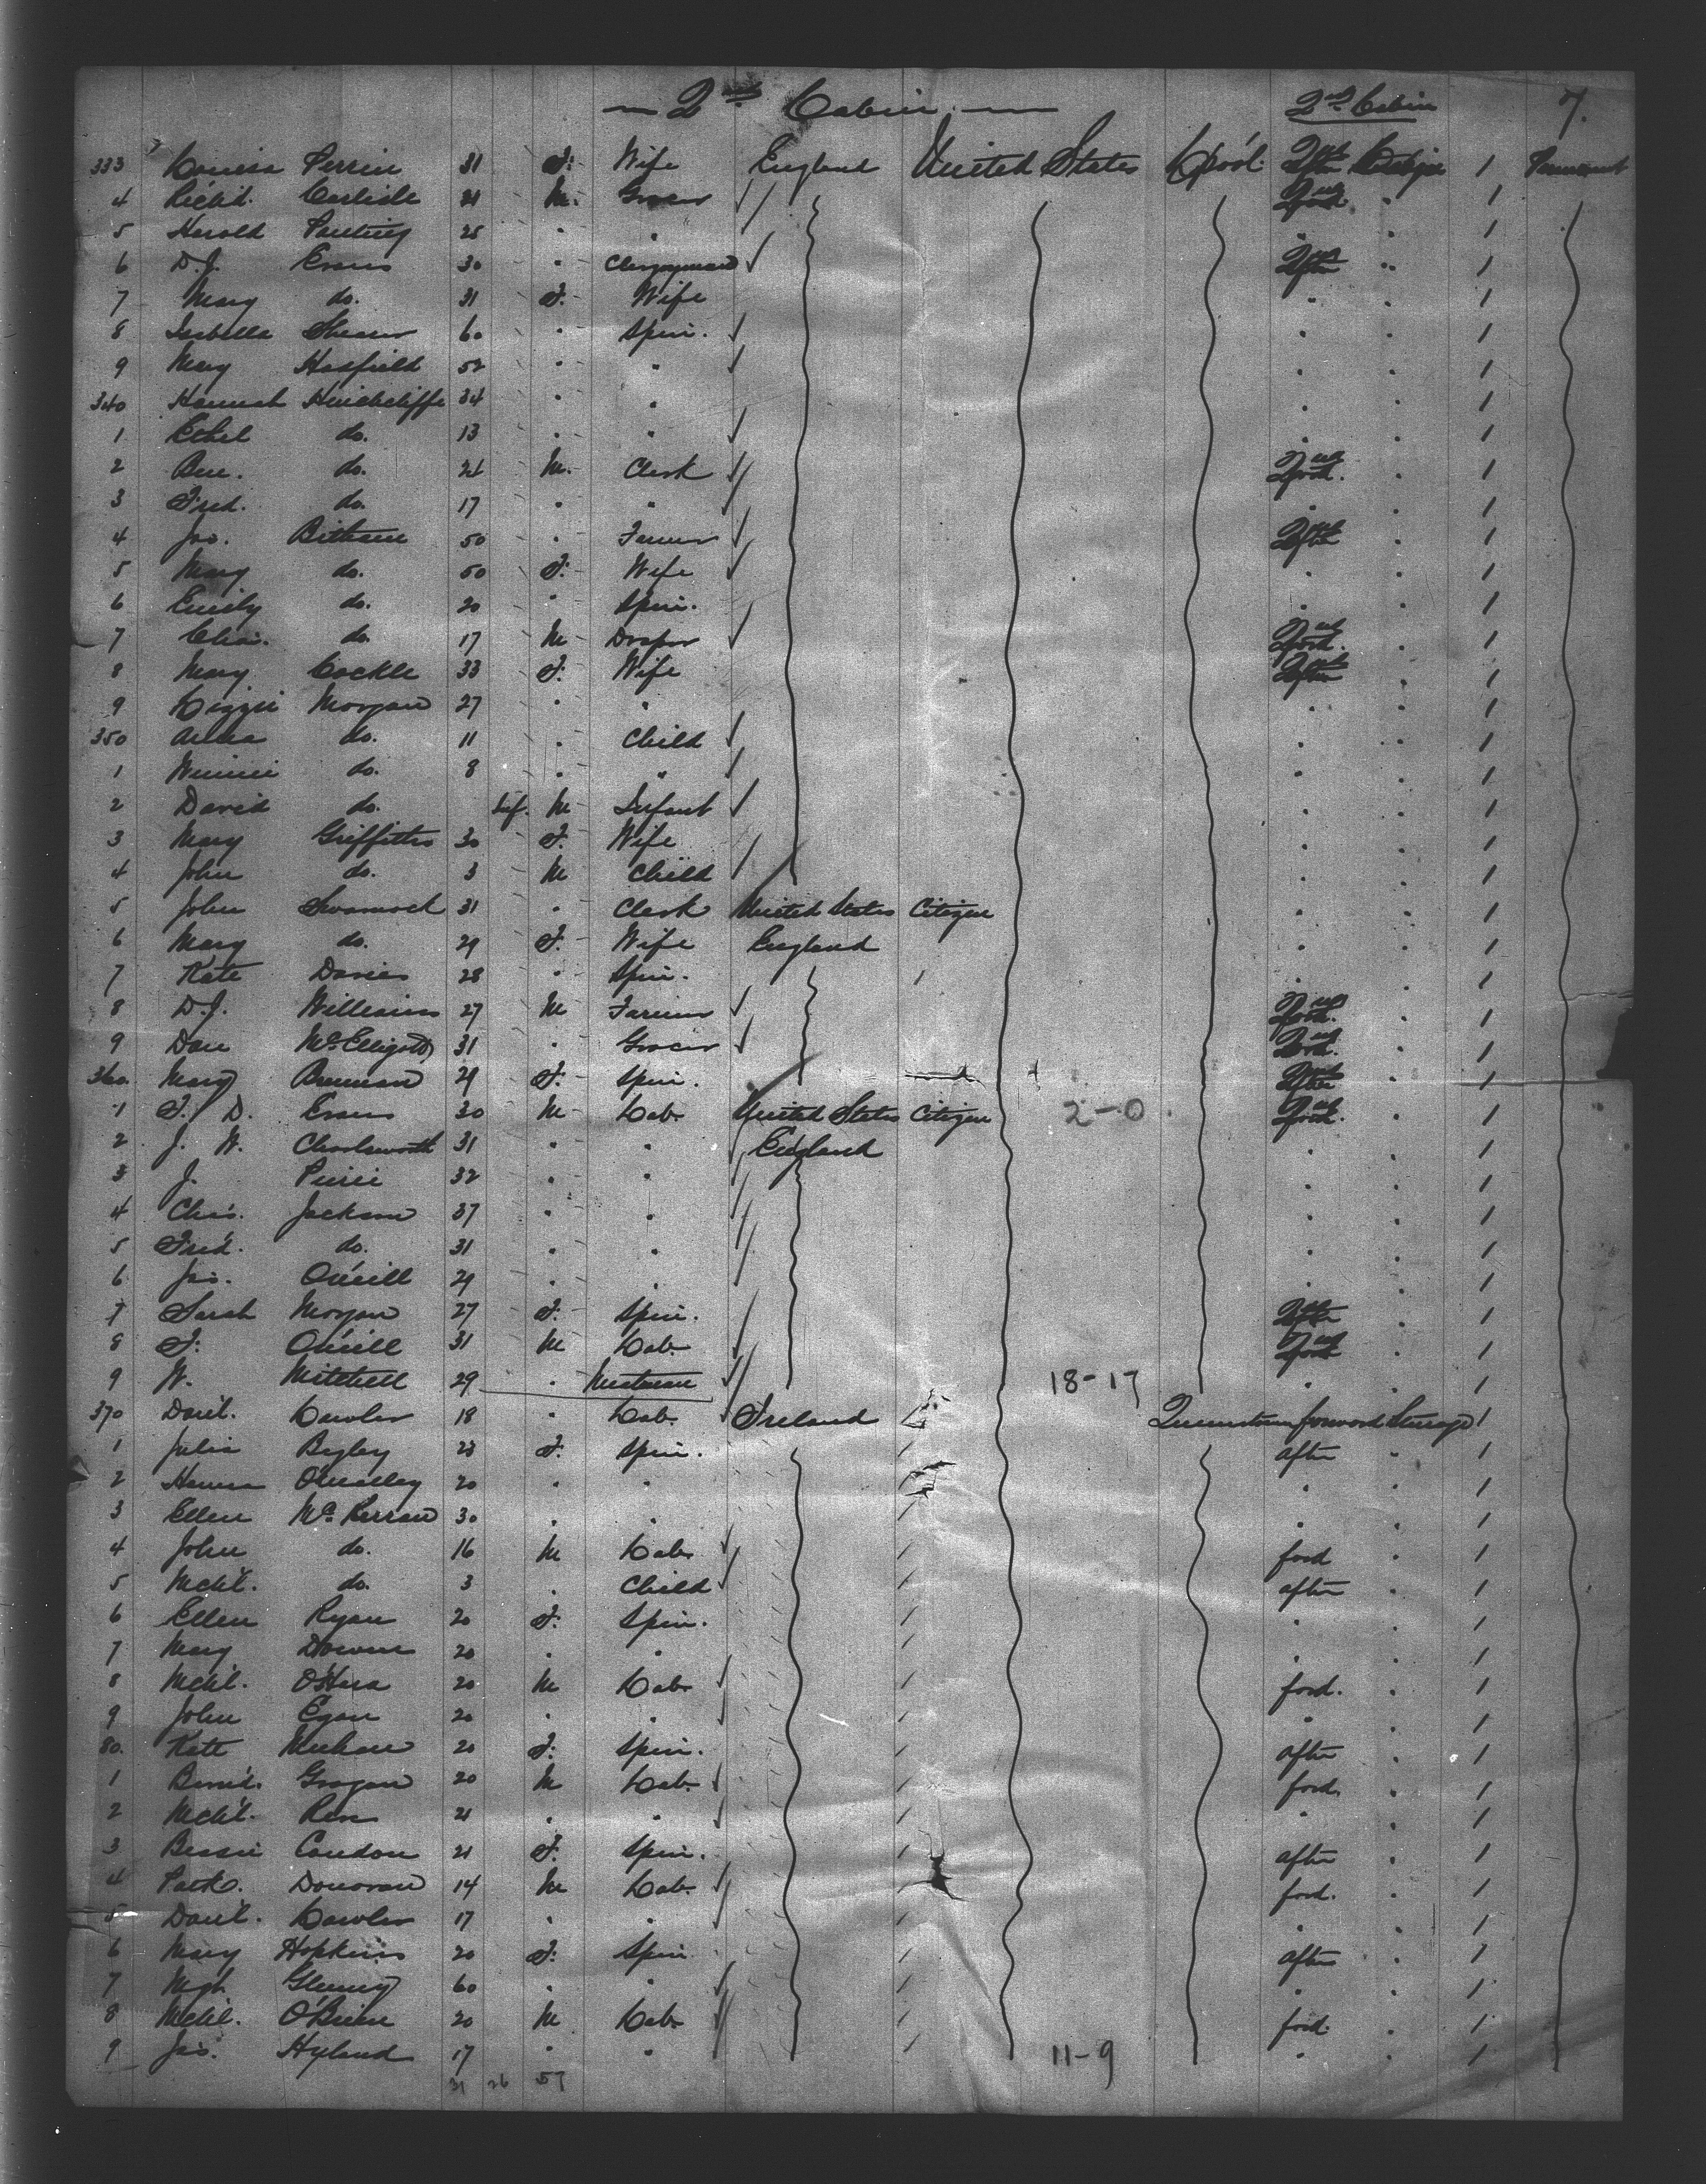 — 2nd Cabin — 2nd Cabin 7.
333 Louisa Perrin 31 F. Wife England United States L'pool 2nd 1 Permanent
4 Rich'd. Carlisle 21 M. Grocer 2nd " 1
5 Harold 25 " " " " 1
6 D.J. Evans 30 " Clergyman 2nd " 1
7 Mary do. 31 F. Wife " " 1
8 Isabella 60 " Spin. " " 1
9 Mary Hadfield 52 " " " " 1
340 Hannah Hinchcliffe 34 " " " " 1
1 Ethel do. 13 " " " " 1
2 Ben. do. 21 M. Clerk 2nd " 1
3 Fred. do. 17 " " " " 1
4 Jno. 50 " Farmer 2nd " 1
5 Mary do. 50 F. Wife " " 1
6 Emily do. 20 " Spin. " " 1
7 Chas. do. 17 M Draper 2nd " 1
8 Mary Cockle 33 F. Wife 2nd " 1
9 Lizzie Morgan 27 " " " " 1
350 Anna do. 11 " Child " " 1
1 Winnie do. 8 " " " " 1
2 David do. Inf. M Infant " " 1
3 Mary Griffiths 30 F. Wife " " 1
4 John do. 3 M Child " " 1
5 John 31 " Clerk United States Citizen " " 1
6 Mary do. 29 F. Wife England " " 1
7 Kate Davies 28 " Spin. " " 1
8 D.J. Williams 27 M Farmer 2nd " 1
9 Dan McElligott 31 " Grocer 2nd " 1
360. Mary Brennan 29 F. Spin. 2nd " 1
1 F. D. Evans 30 M Lab. United States Citizen 2-0 2nd " 1
2 J. W. Charlesworth 31 " " England " " 1
3 J. Pirie 32 " " " " 1
4 Chas. Jackson 37 " " " " 1
5 Fred. do. 31 " " " " 1
6 Jas. O'Neill 29 " " " " 1
7 Sarah Morgan 27 F. Spin. 2nd " 1
8 F. O'Neill 31 M Lab. 2nd " 1
9 W. Mitchell 29 " 18-17 " " 1
370 Danl. Lawlor 18 " Lab. Ireland Queenstown forward Steerage 1
1 Julia Begley 23 F. Spin. after " 1
2 O'Malley 20 " " " " 1
3 Ellen 30 " " " " 1
4 John do. 16 M Lab. ford " 1
5 Mchl. do. 3 " Child after " 1
6 Ellen Ryan 20 F. Spin. " " 1
7 Mary 20 " " " " 1
8 Mchl. O'Hara 20 M Lab. ford. " 1
9 John Egan 20 " " " " 1
80. Kate Meehan 20 F. Spin. after " 1
1 Bernd. Grogan 20 M Lab. ford. " 1
2 Mchl. 21 " " " " 1
3 Bessie Condon 21 F. Spin. after " 1
4 Patk. Donovan 14 M Lab. ford. " 1
5 Danl. Lawlor 17 " " " " 1
6 Mary Hopkins 20 F. Spin. after " 1
7 Mgt. 60 " " " " 1
8 Mchl. O'Brien 20 M Lab. ford. " 1
9 Jas. Hyland 17 " " 11-9 " " 1
31 26 57